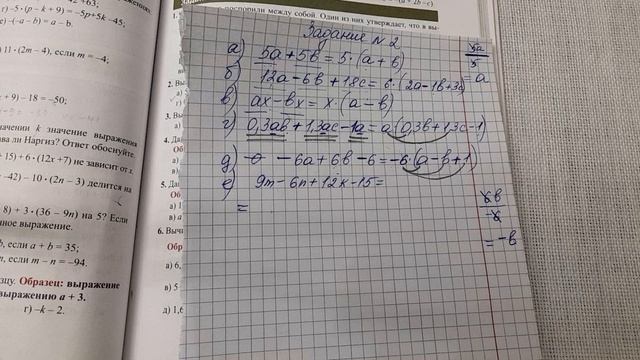 г) -5·(p - k + 9) = -5p+5k -45;
е) -(-a - b) = a - b.
11·(2m - 4), если m = -4;
x + 9) - 18 = -50;
значение выражения
ва ли Наргиз? Ответ обоснуйте.
+ 15) + 6·(12x +7) не зависит от x.
- 42) - 10·(2n - 3) делится на
8) + 3·(36 - 9n) на 5? Если
нное выражение.
b, если a + b = 35;
n, если m - n = -94.
зцу. Образец: выражение
выражению a + 3.
г) -k - 2.
поспорили между собой. Один из них утверждает, что в вы-
6. Вычи
Обр
а) 6,
в) 5
д) 1,6
Задание №2
а) 5a + 5b = 5·(a + b)
б) 12a - 6b + 18c = 6·(2a - 1b + 3c)
в) ax - bx = x·(a - b)
г) 0,3ab + 1,3ac - 1a = a(0,3b + 1,3c - 1)
д) - 6a + 6b - 6 = -6·(a - b + 1)
е) 9m - 6n + 12k - 15 =
=
5a
5
= a
xb
-x
= -b